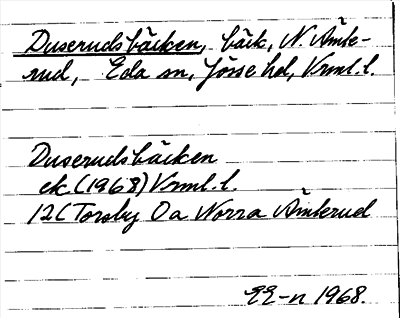 Duserudsbäcken, bäck, N. Ämte-
rud, Eda sn, Jösse hd, Vrml. l.
Duserudsbäcken
ek. (1968) Vrml. l.
12C Torsby Oa Norra Ämterud
EE-n 1968.